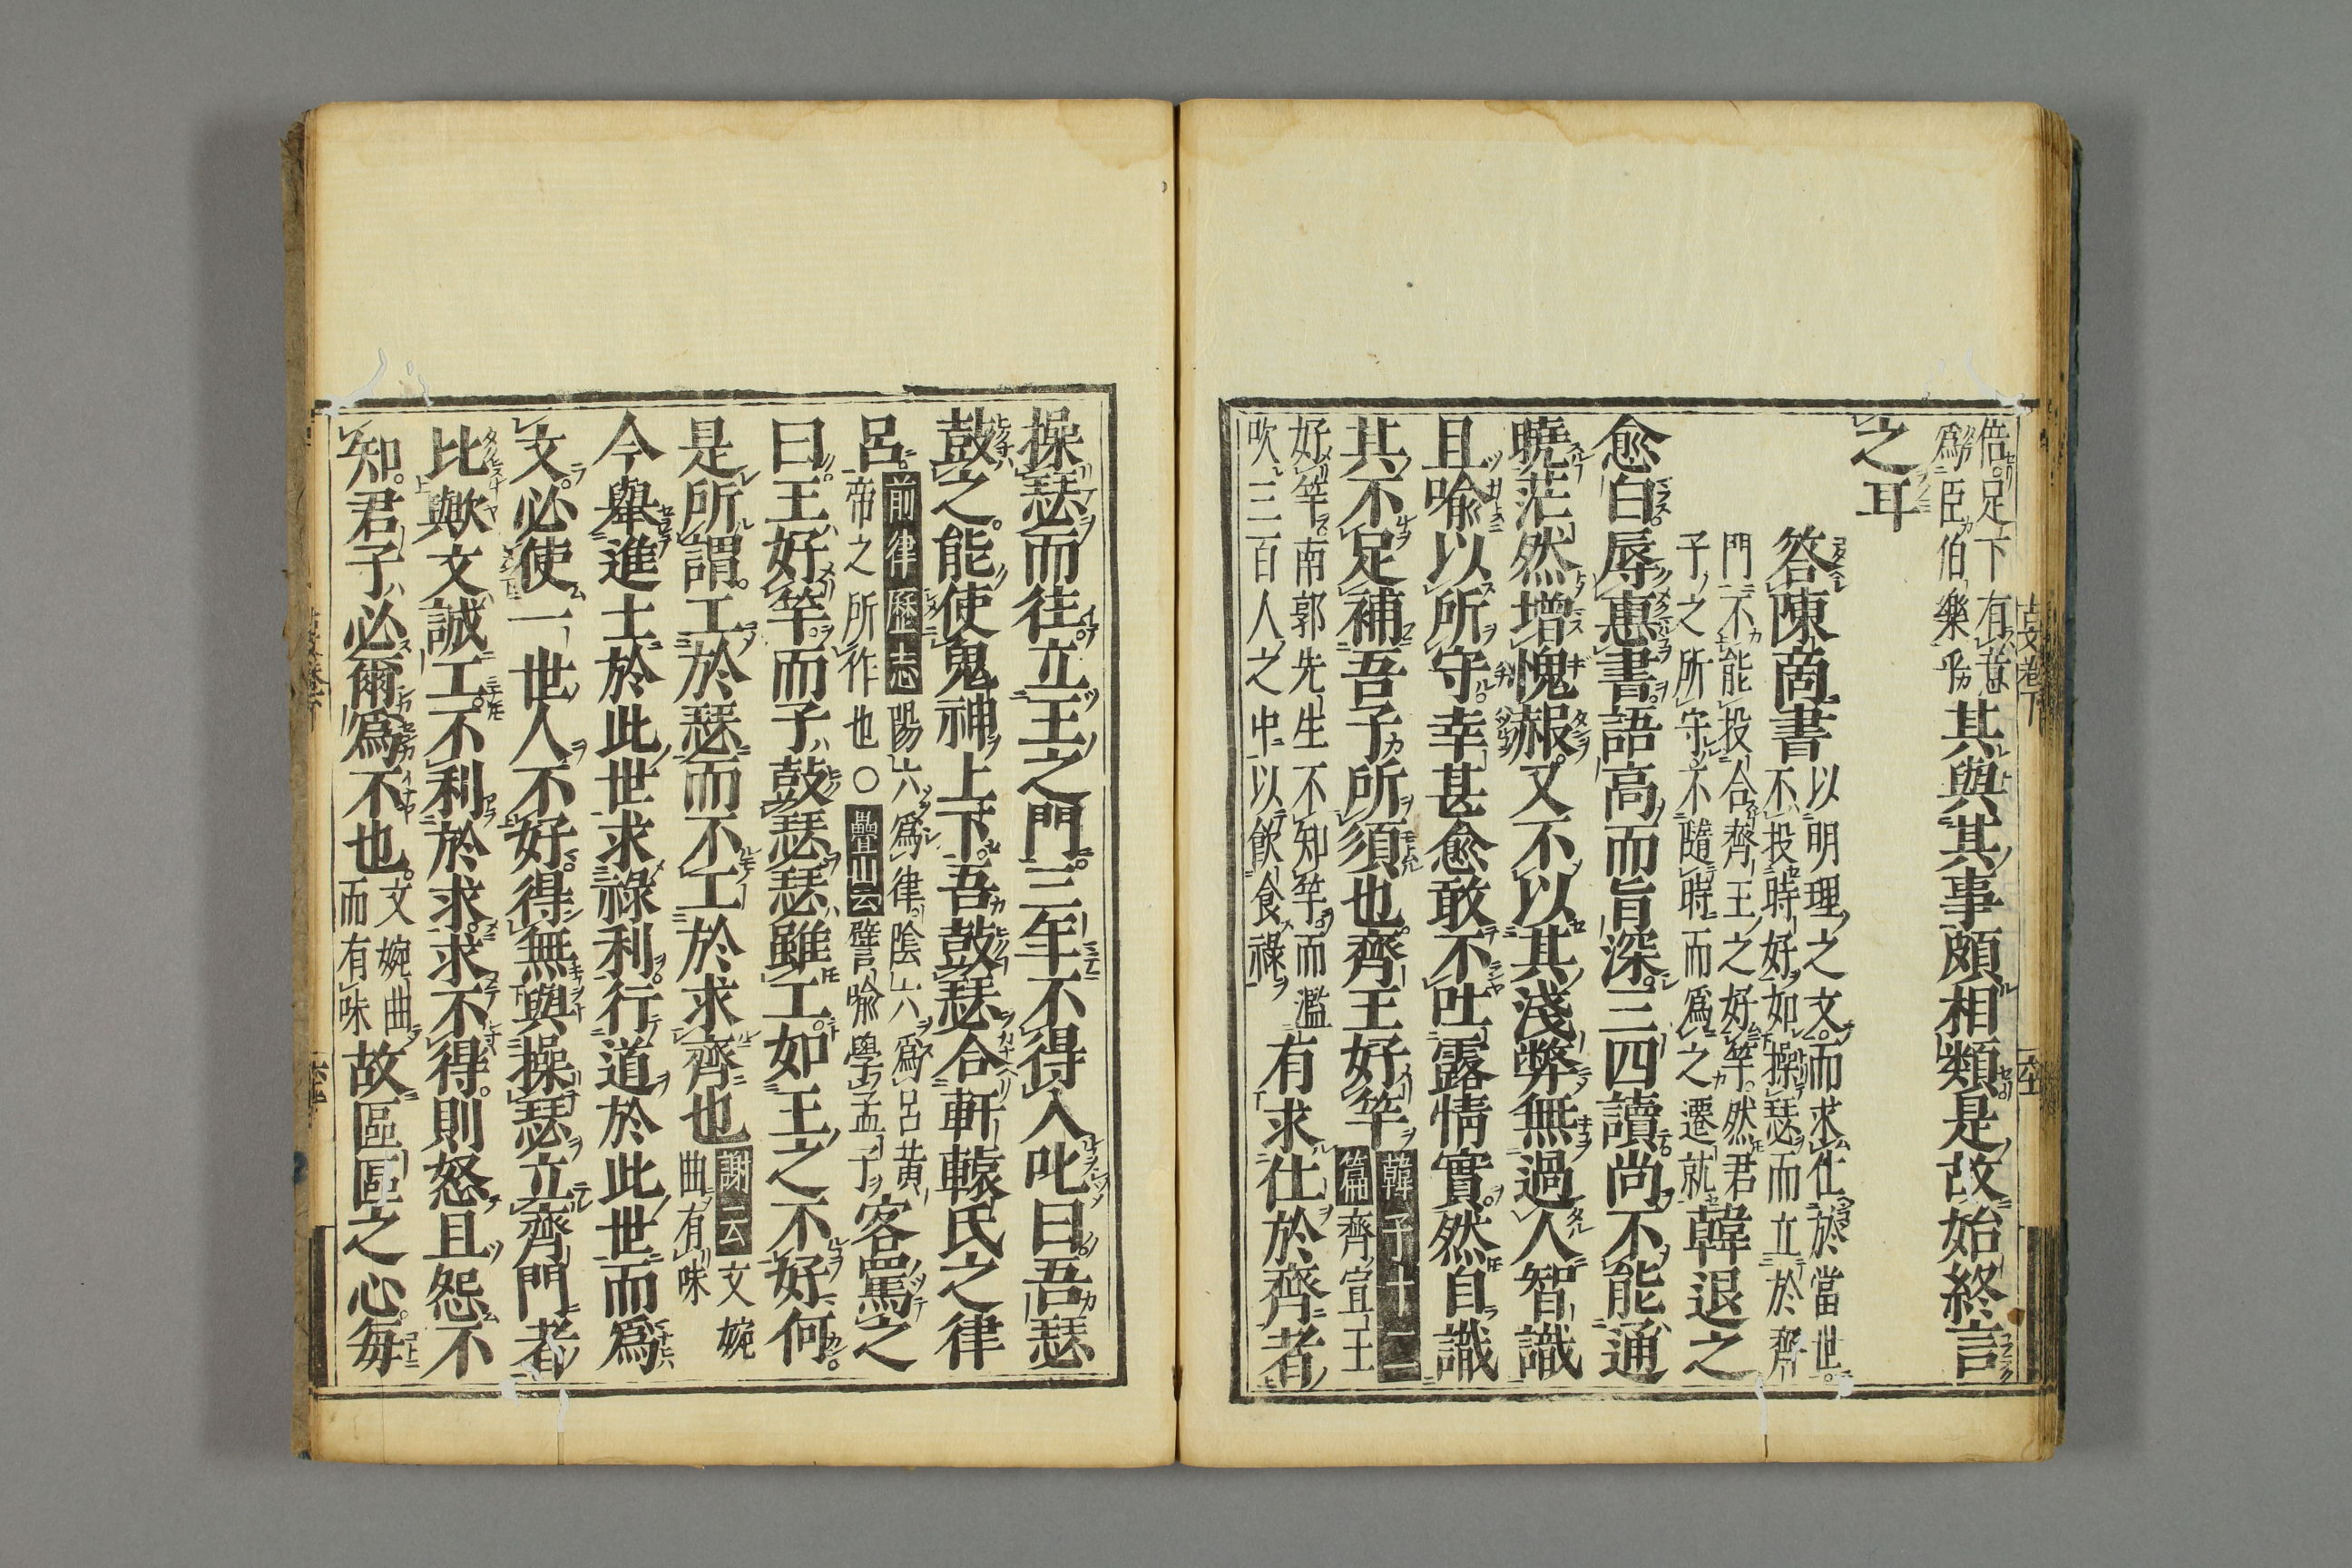 倍足下有意
爲臣伯樂乎
其與其事頗相類是故始終言
之耳
答陳商書
以明理之文而求仕於當世
不投時好如操瑟而立於齊
門不能投合齊王之好竽然君
子之所守不隨時而爲之遷就
韓退之
愈白辱惠書語高而旨深三四讀尚不能通
曉茫然增愧赧又不以其淺弊無過人智識
且喩以所守幸甚愈敢不吐露情實然自識
其不足補吾子所須也齊王好竽
韓子十二
篇齊宣王
好竽南郭先生不知竽而濫
吹三百人之中以飲食祿
有求仕於齊者
操瑟而往立王之門三年不得入叱曰吾瑟
鼓之能使鬼神上下吾鼓瑟合軒轅氏之律
呂
前律曆志陽六爲律陰六爲呂黄
帝之所作也〇疊山云譬喩學孟子
客罵之
曰王好竽而子鼓瑟瑟雖工如王之不好何
是所謂工於瑟而不工於求齊也
謝云文婉
曲有味
今舉進士於此世求祿利行道於此世而爲
文必使一世人不好得無與操瑟立齊門者
比歟文誠工不利於求求不得則怒且怨不
知君子必爾爲不也
文婉曲
而有味
故區區之心毎